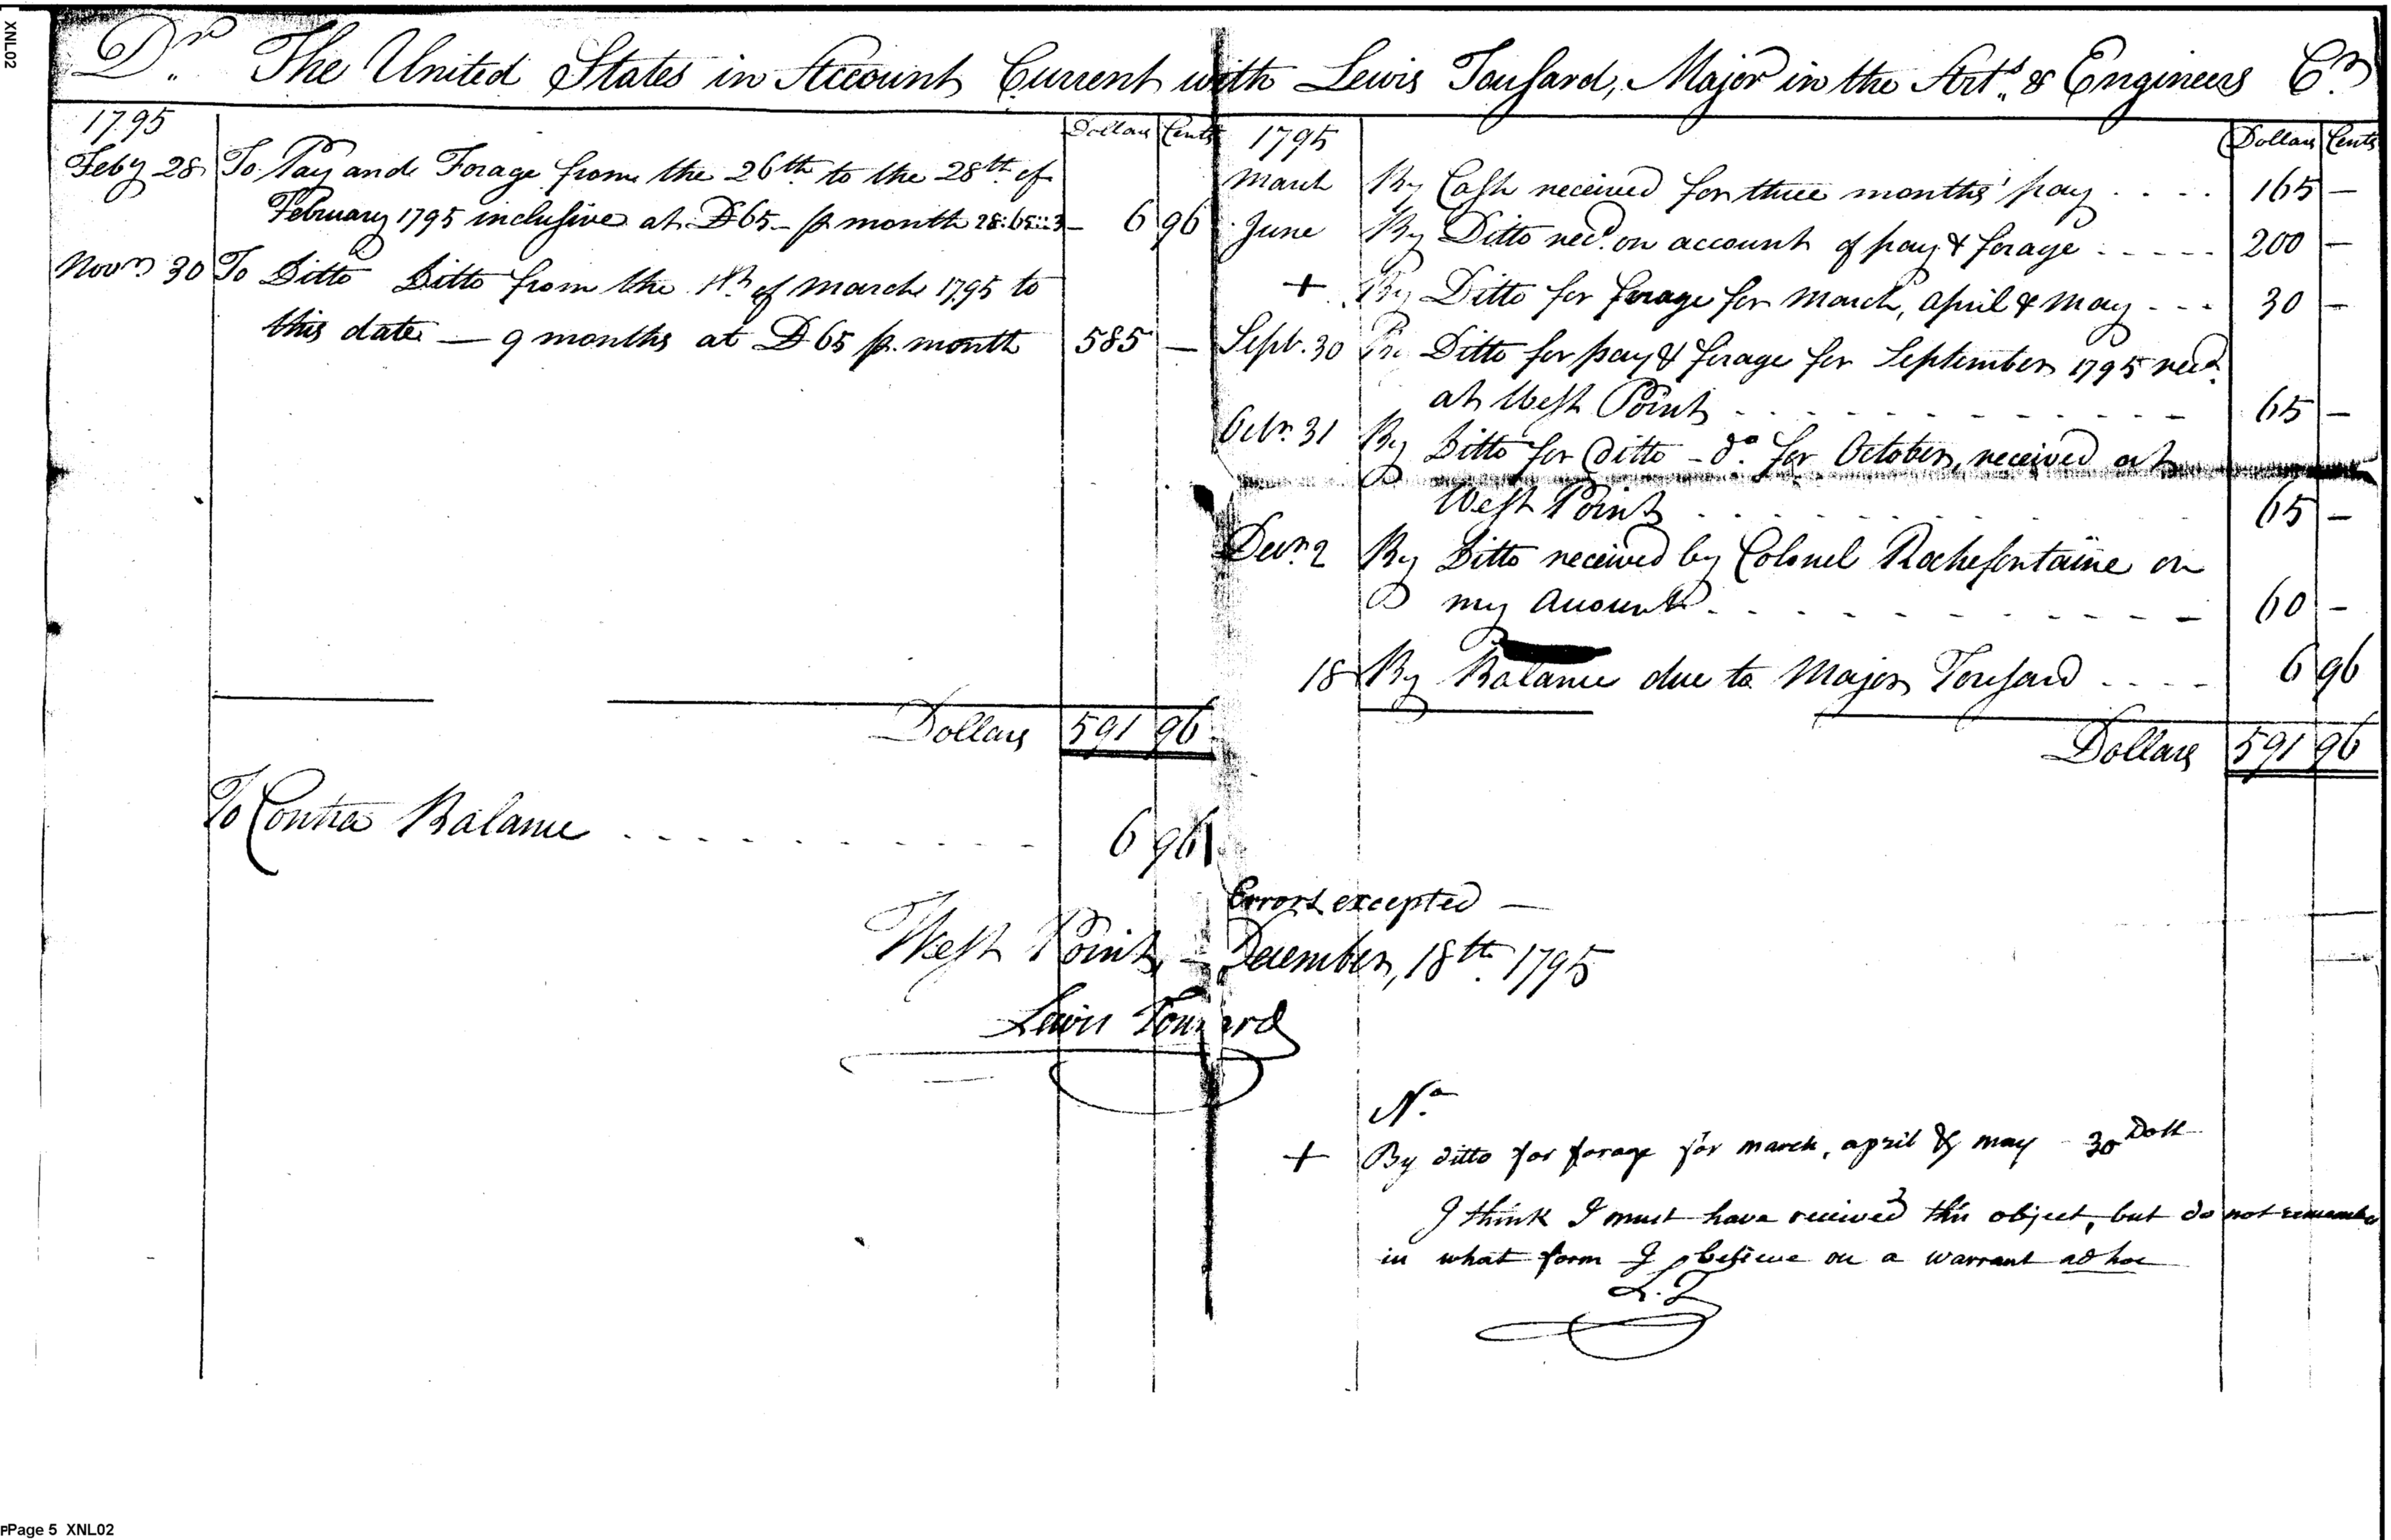 XNL02
Dr. The United States in Account Current with Lewis Tousard, Major in the Arts. & Engineers Cr.
1795
Dollars Cents
Feby 28 To Pay and Forage from the 26th to the 28th of
February 1795 inclusive at D65- p month 28:65::3- 6 96
Novr. 30 To Ditto Ditto from the 1st of March 1795 to
this date — 9 months at D65 p. month 585 —
Dollars 591 96
To Contra Balance . . . . . . . . . . 6 96
1795
Dollars Cents
March By Cash received for three months' pay . . . . 165 —
June By Ditto recd. on account of pay & forage . . . . . 200 —
+ By Ditto for forage for March, April & May - - - 30 —
Sept. 30 By Ditto for pay & forage for September 1795 recd.
at West Point . . . . . . . . . . . 65 —
Octr. 31 By Ditto for Ditto - do. for October, received at
West Point . . . . . . . . . 65 —
Decr. 2 By Ditto received by Colonel Rochefontaine on
my Account . . . . . . . . . . . 60 —
18 By Balance due to Major Tousard . . . . 6 96
Dollars 591 96
Errors excepted —
West Point, - December, 18th. 1795
Lewis Tousard
Na.
+ By ditto for forage for march, april & may 30 Doll
I think I must have received this object, but do not remember
in what form I believe on a warrant ad hoc
L. T.
Page 5 XNL02